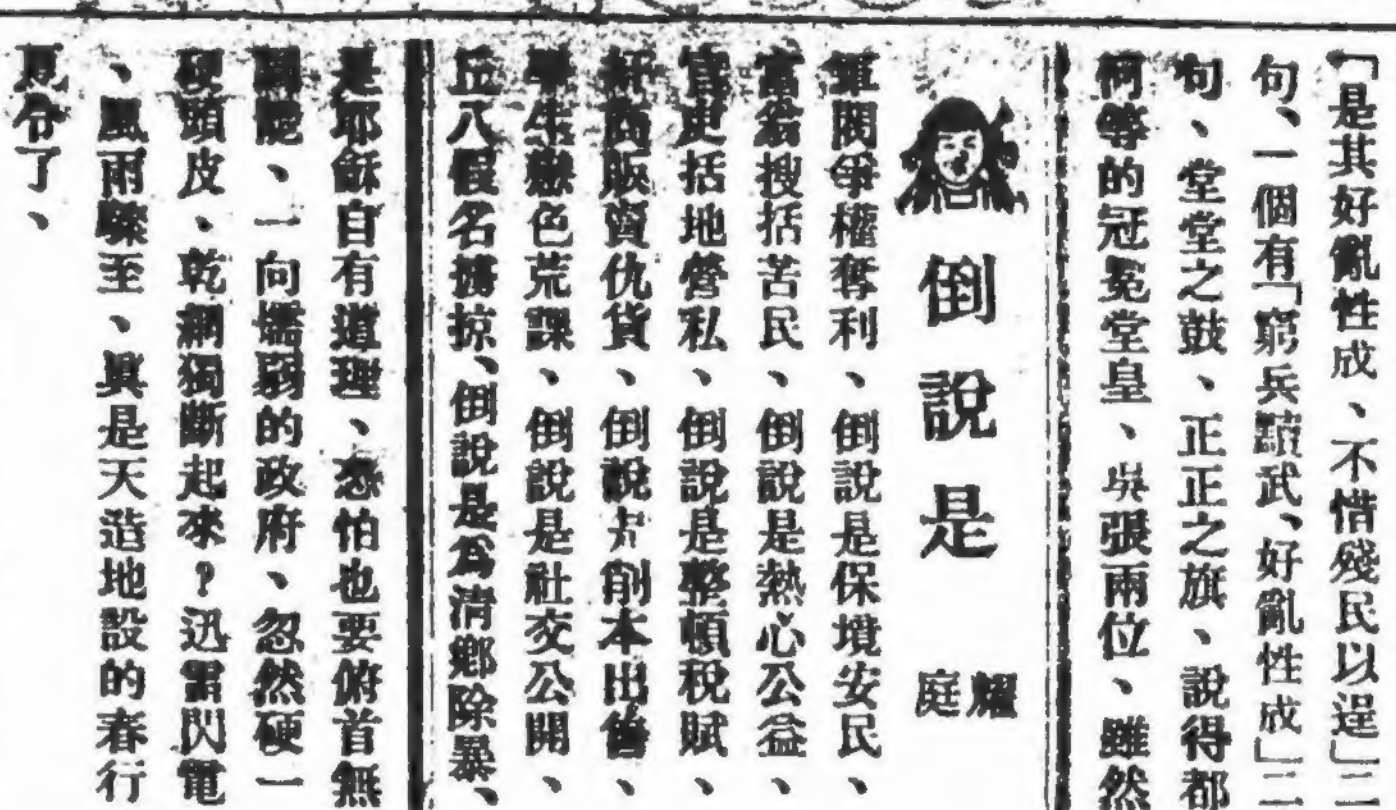 「是其好亂性成、不惜殘民以逞」二
句、一個有「窮兵黷武、好亂性成」二
句、堂堂之鼓、正正之旗、說得都
何等的冠冕堂皇、吳張兩位、雖然
倒說是
耀庭
軍閥爭權奪利、倒說是保境安民、
富翁搜括苦民、倒說是熱心公益、
官吏括地營私、倒說是整頓稅賦、
奸商販賣仇貨、倒說是削本出售、
學生戀色荒課、倒說是社交公開、
丘八假名擄掠、倒說是為清鄉除暴、
是耶穌自有道理、恐怕也要俯首無
一向懦弱的政府、忽然硬一
硬頭皮、乾綱獨斷起來？迅雷閃電
、風雨驟至、真是天造地設的春行
夏令了、